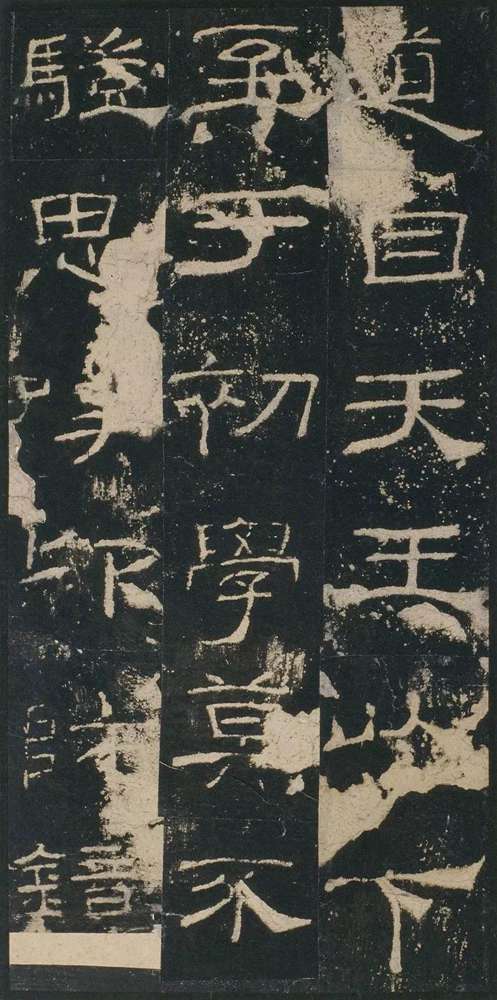 道自天王以下
至于初學莫不
驥思卬師鏡